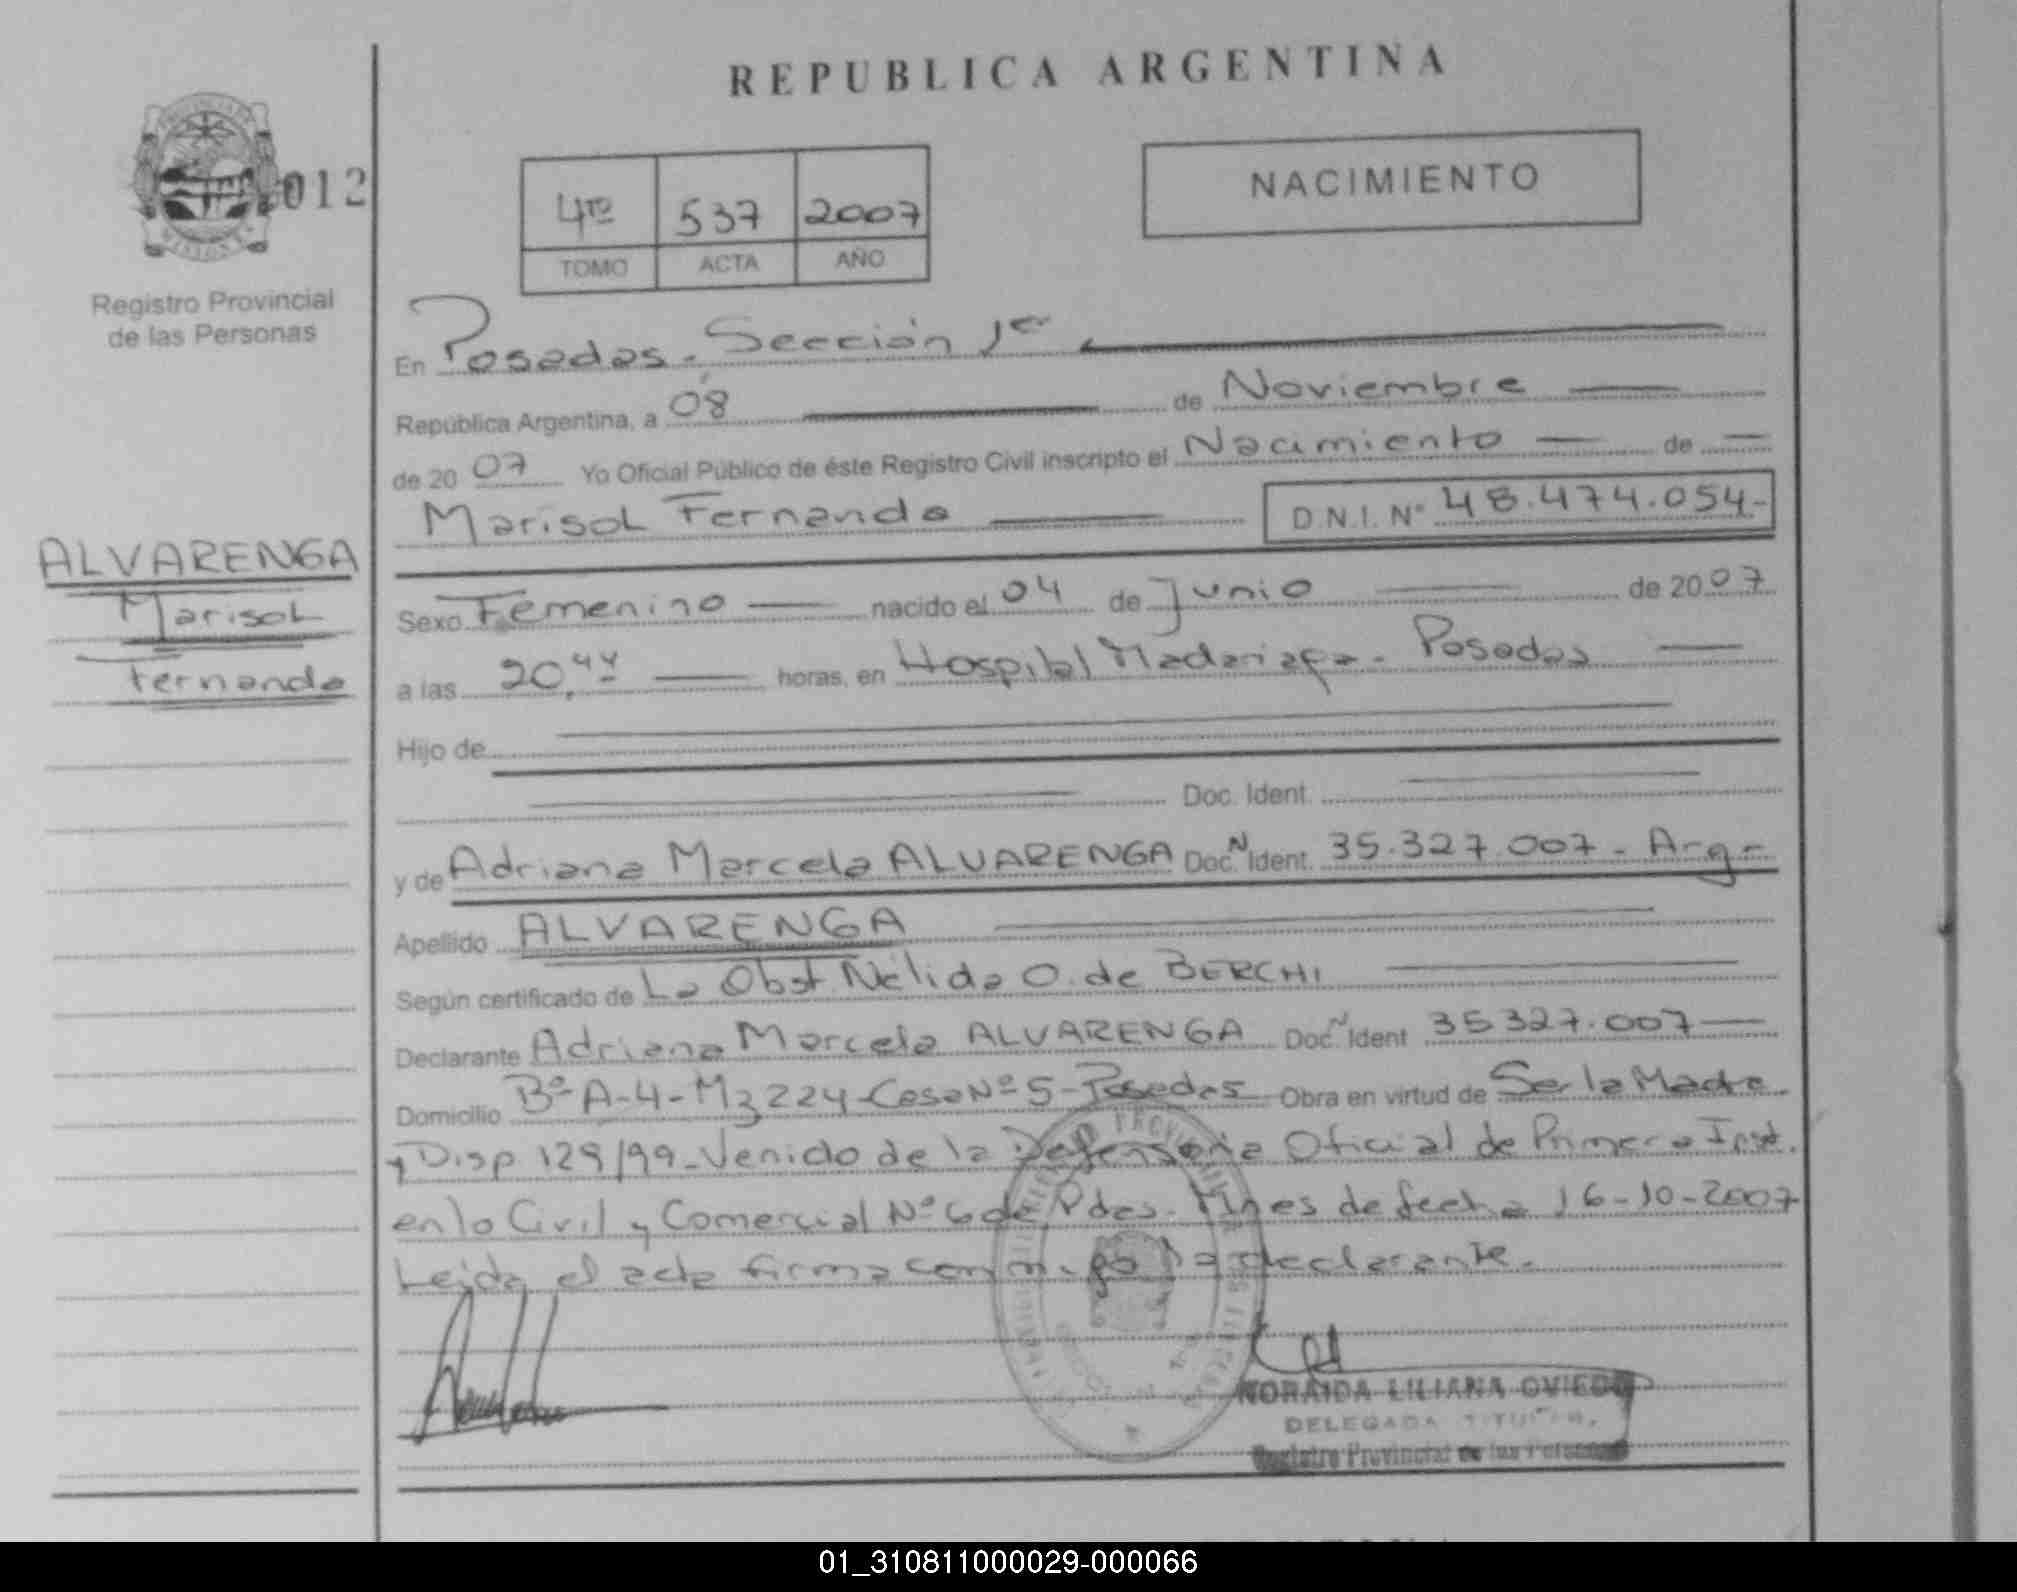 REPUBLICA ARGENTINA
012
NACIMIENTO
4to 537 2007
TOMO ACTA AÑO
Registro Provincial
de las Personas
En Posadas. Sección 1er
República Argentina, a 08 de Noviembre
de 2007 Yo Oficial Público de éste Registro Civil inscripto el Nacimiento de
Marisol Fernanda D.N.I. Nº 48.474.054-
ALVARENGA
Marisol
Fernanda
Sexo Femenino nacido el 04 de Junio de 2007
a las 20,44 horas, en Hospital Madariaga - Posadas
Hijo de
Doc. Ident.
y de Adriana Marcela ALVARENGA Doc. N Ident. 35.327.007 - Arg -
Apellido ALVARENGA
Según certificado de La Obst. Nélida O. de BERCHI
Declarante Adriana Marcela ALVARENGA Doc. N Ident 35 327.007
Domicilio Bº A-4-Mz 224-Casa Nº 5-Posadas Obra en virtud de Ser la Madre
y Disp 129/99-Venido de la Defensoria Oficial de Primera Inst.
en lo Civil y Comercial Nº 6 de Pdas. Mnes de fecha 16-10-2007
Leida el acta firma conmigo la declarante.
NORAIDA LILIANA OVIEDO
DELEGADA TITULAR
Registro Provincial de las Personas
01_310811000029-000066